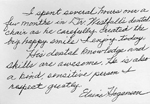 I spent several hours over a
few months in Dr. Westfold's dental
chair as he carefully created the
big happy smile I enjoy today.
His dental knowledge and
skills are awesome. He is also
a kind, sensitive person I
respect greatly.
Elaine Hageman